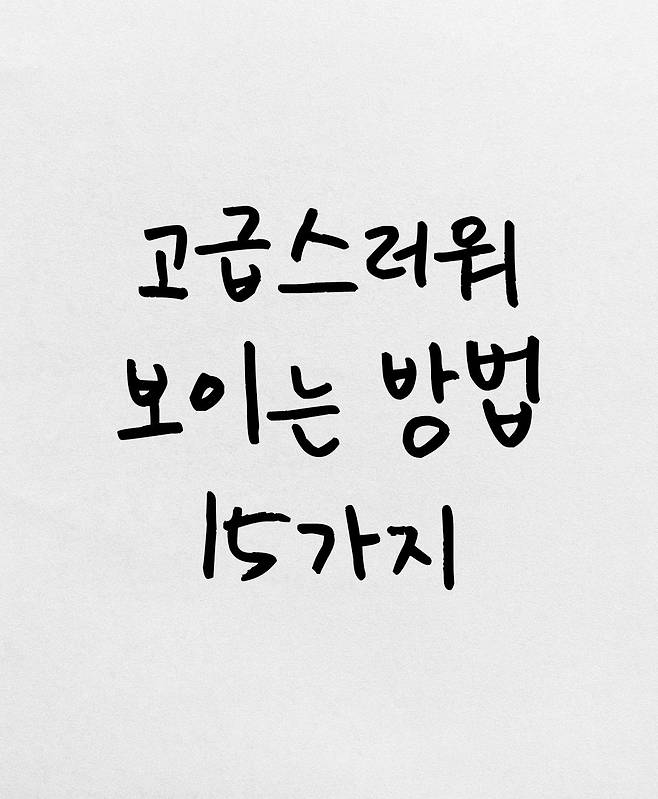 고급스러워
보이는 방법
15가지